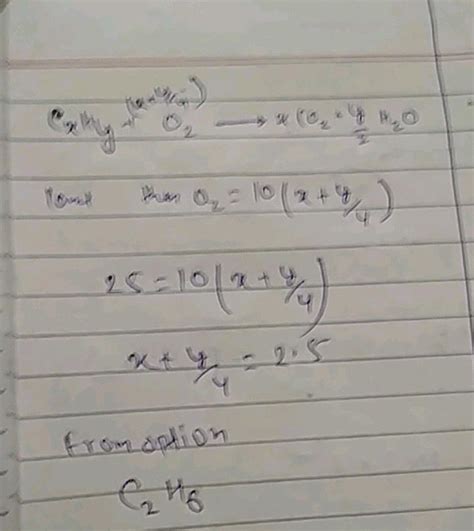 (x+y/4)
CxHy + O2 → x CO2 + y/2 H2O
then O2 = 10(x + y/4)
25 = 10(x + y/4)
x + y/4 = 2.5
from option
C2H6